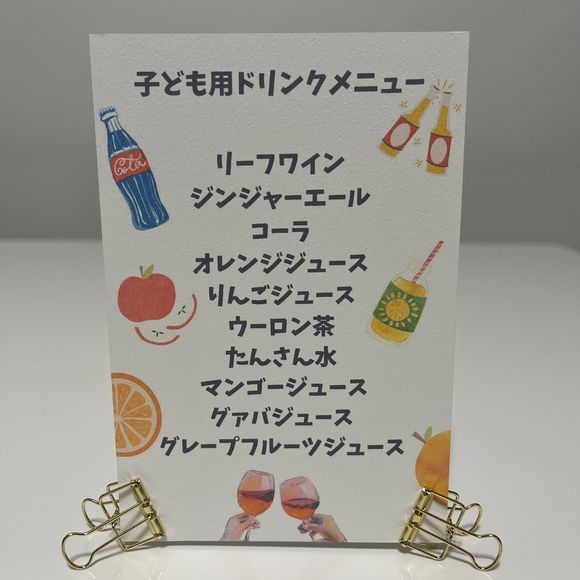 子ども用ドリンクメニュー
Cola
リーフワイン
ジンジャーエール
コーラ
オレンジジュース
りんごジュース
ウーロン茶
たんさん水
マンゴージュース
グァバジュース
グレープフルーツジュース